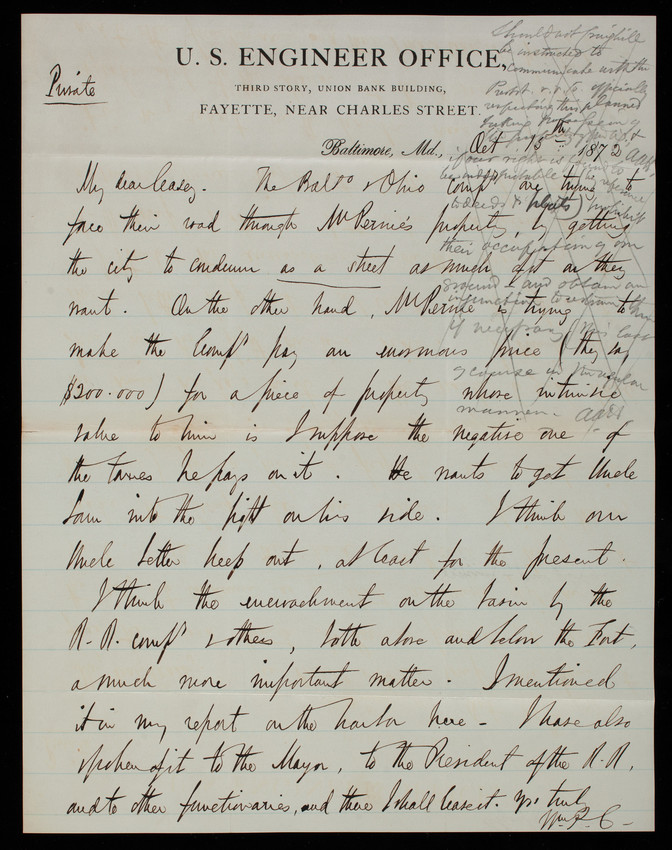 U. S. ENGINEER OFFICE,
THIRD STORY, UNION BANK BUILDING,
FAYETTE, NEAR CHARLES STREET.
Private
Baltimore, Md., Oct 15th 1872
should not
be instructed to
communicate with the
officially
respecting this planned
their occupation of our
ground and obtain an
injunction to
if necessary
manner.
My dear Casey. The Balto & Ohio Compy are trying to
force their road through Mr 's property, by getting
the city to condemn as a street as much of it as they
want. On the other hand, Mr is trying to
make the Compy pay an enormous price (they say
$200.000) for a piece of property whose intrinsic
value to him is I suppose the negative one of
the taxes he pays on it. He wants to get Uncle
Sam into the fight on his side. I think our
Uncle better keep out, at least for the present.
I think the encroachment on the basin by the
R.R. compy & others, both above and below the Fort,
a much more important matter. I mentioned
it in my report on the harbor here - I have also
spoken of it to the Mayor, to the President of the R.R.
and to other functionaries, and there I shall leave it. yrs truly
Wm P. C-